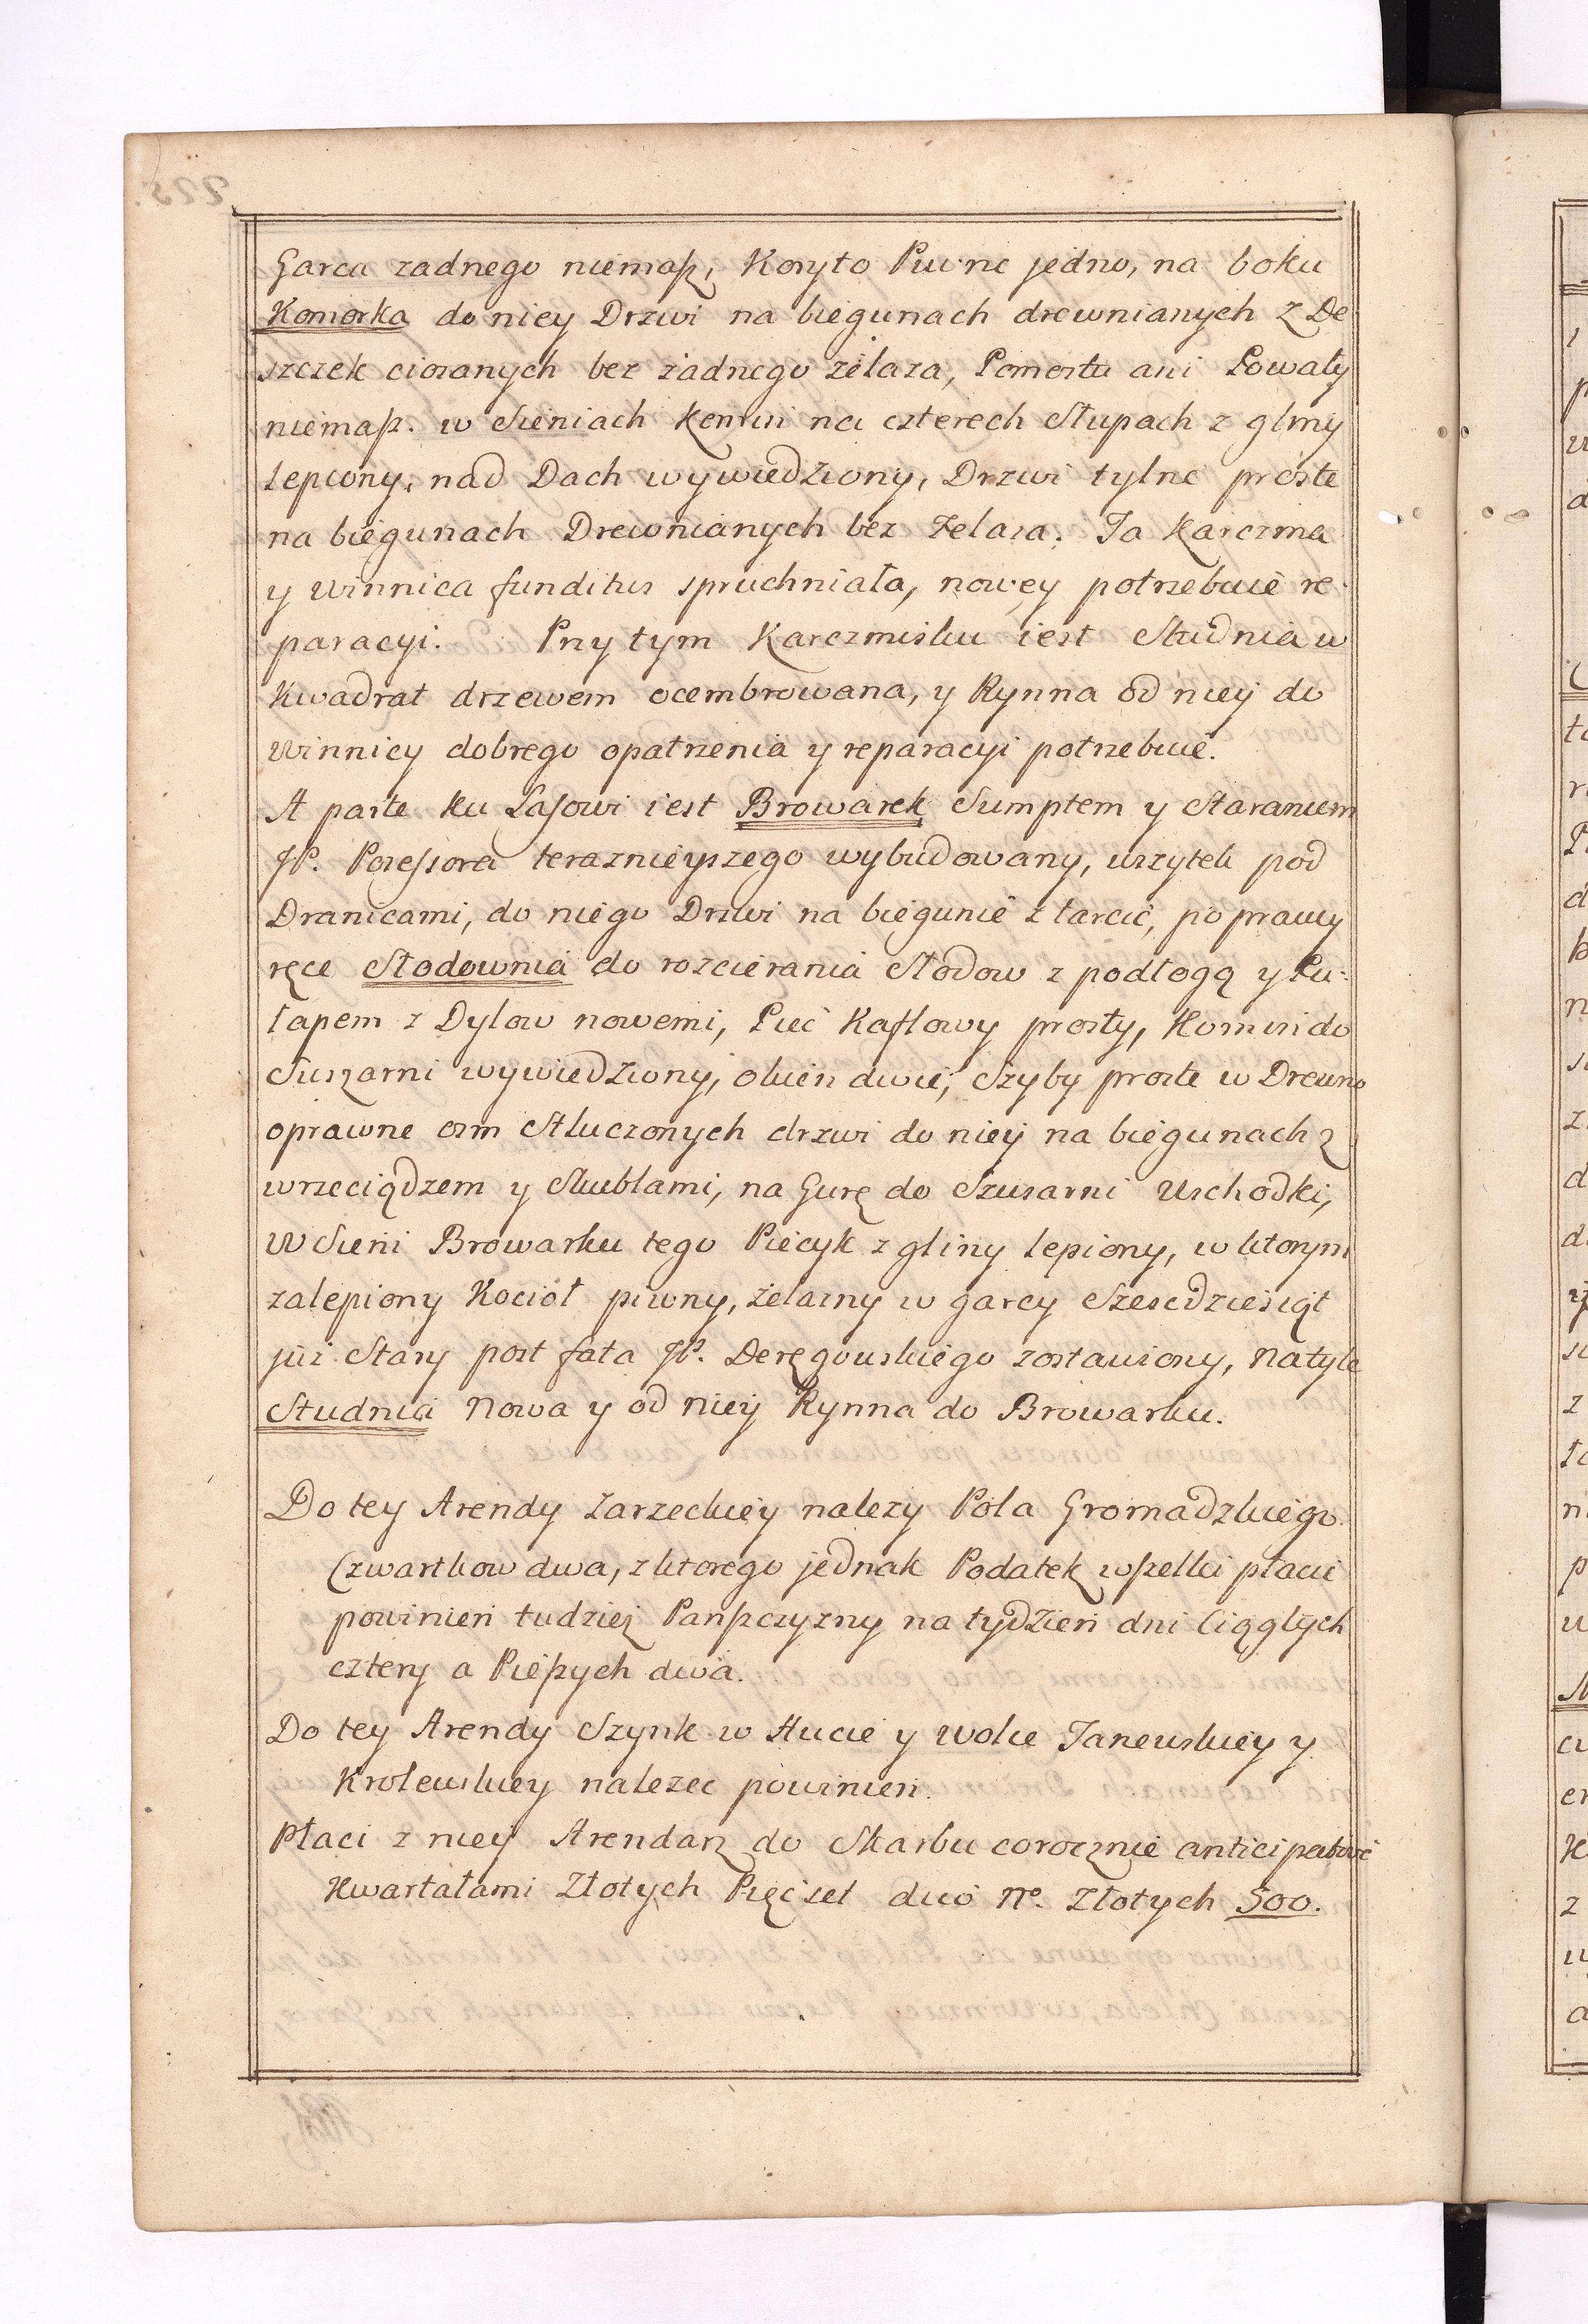 Garca zadnego niemasz, Koryto Piwne jedno, na boku
Komorka do niey Drzwi na biegunach drewnianych z De
szczek ciosanych bez żadnego żelaza, Pomostu ani Powały
niemasz. w Sieniach komin na czterech Słupach z gliny
lepiony, nad Dach wywiedziony, Drzwi tylne proste
na biegunach Drewnianych bez żelaza. Ta Karczma
y winnica funditus spruchniała, nowey potrzebuie re-
paracyi. Przy tym Karczmisku iest Studnia w
Kwadrat drzewem ocembrowana, y Rynna od niey do
winnicy dobrego opatrzenia y reparacyi potrzebuie.
A parte ku Lasowi iest Browarek Sumptem y Staraniem
JP. Posessora teraznieyszego wybudowany, wszytek pod
Dranicami, do niego Drzwi na biegunie z tarcic, po prawy
ręce Słodownia do rozcierania Słodow z podłogą y Pu-
łapem z Dylow nowemi, Piec Kaflowy prosty, Komin do
Suszarni wywiedziony, okien dwie, Szyby proste w Drewno
oprawne osm Stluczonych drzwi do niey na biegunach z
wrzeciądzem y Skublami, na Gurę do Szusarni Uschodki,
W Sieni Browarku tego Piecyk z gliny lepiony, w ktorym
zalepiony Kocioł piwny, żelazny w garcy Szescdziesiąt
już Stary post fata JP. Deręgowskiego zostawiony, Na tyle
Studnia Nowa y od niey Rynna do Browarku.
Do tey Arendy Zarzeckiey nalezy Pola Gromadzkiego
Czwartkow dwa, z ktorego jednak Podatek wszelki płacic
powinien tudziez Panszczyzny na tydzień dni Ciągłych
cztery a Pieszych dwa.
Do tey Arendy Szynk w Hucie y Wolce Tanewskiey y
Krolewskiey nalezec powinien.
Płaci z niey Arendarz do Skarbu corocznie anticipative
Kwartałami Złotych Pięćset dico No. Złotych 500.